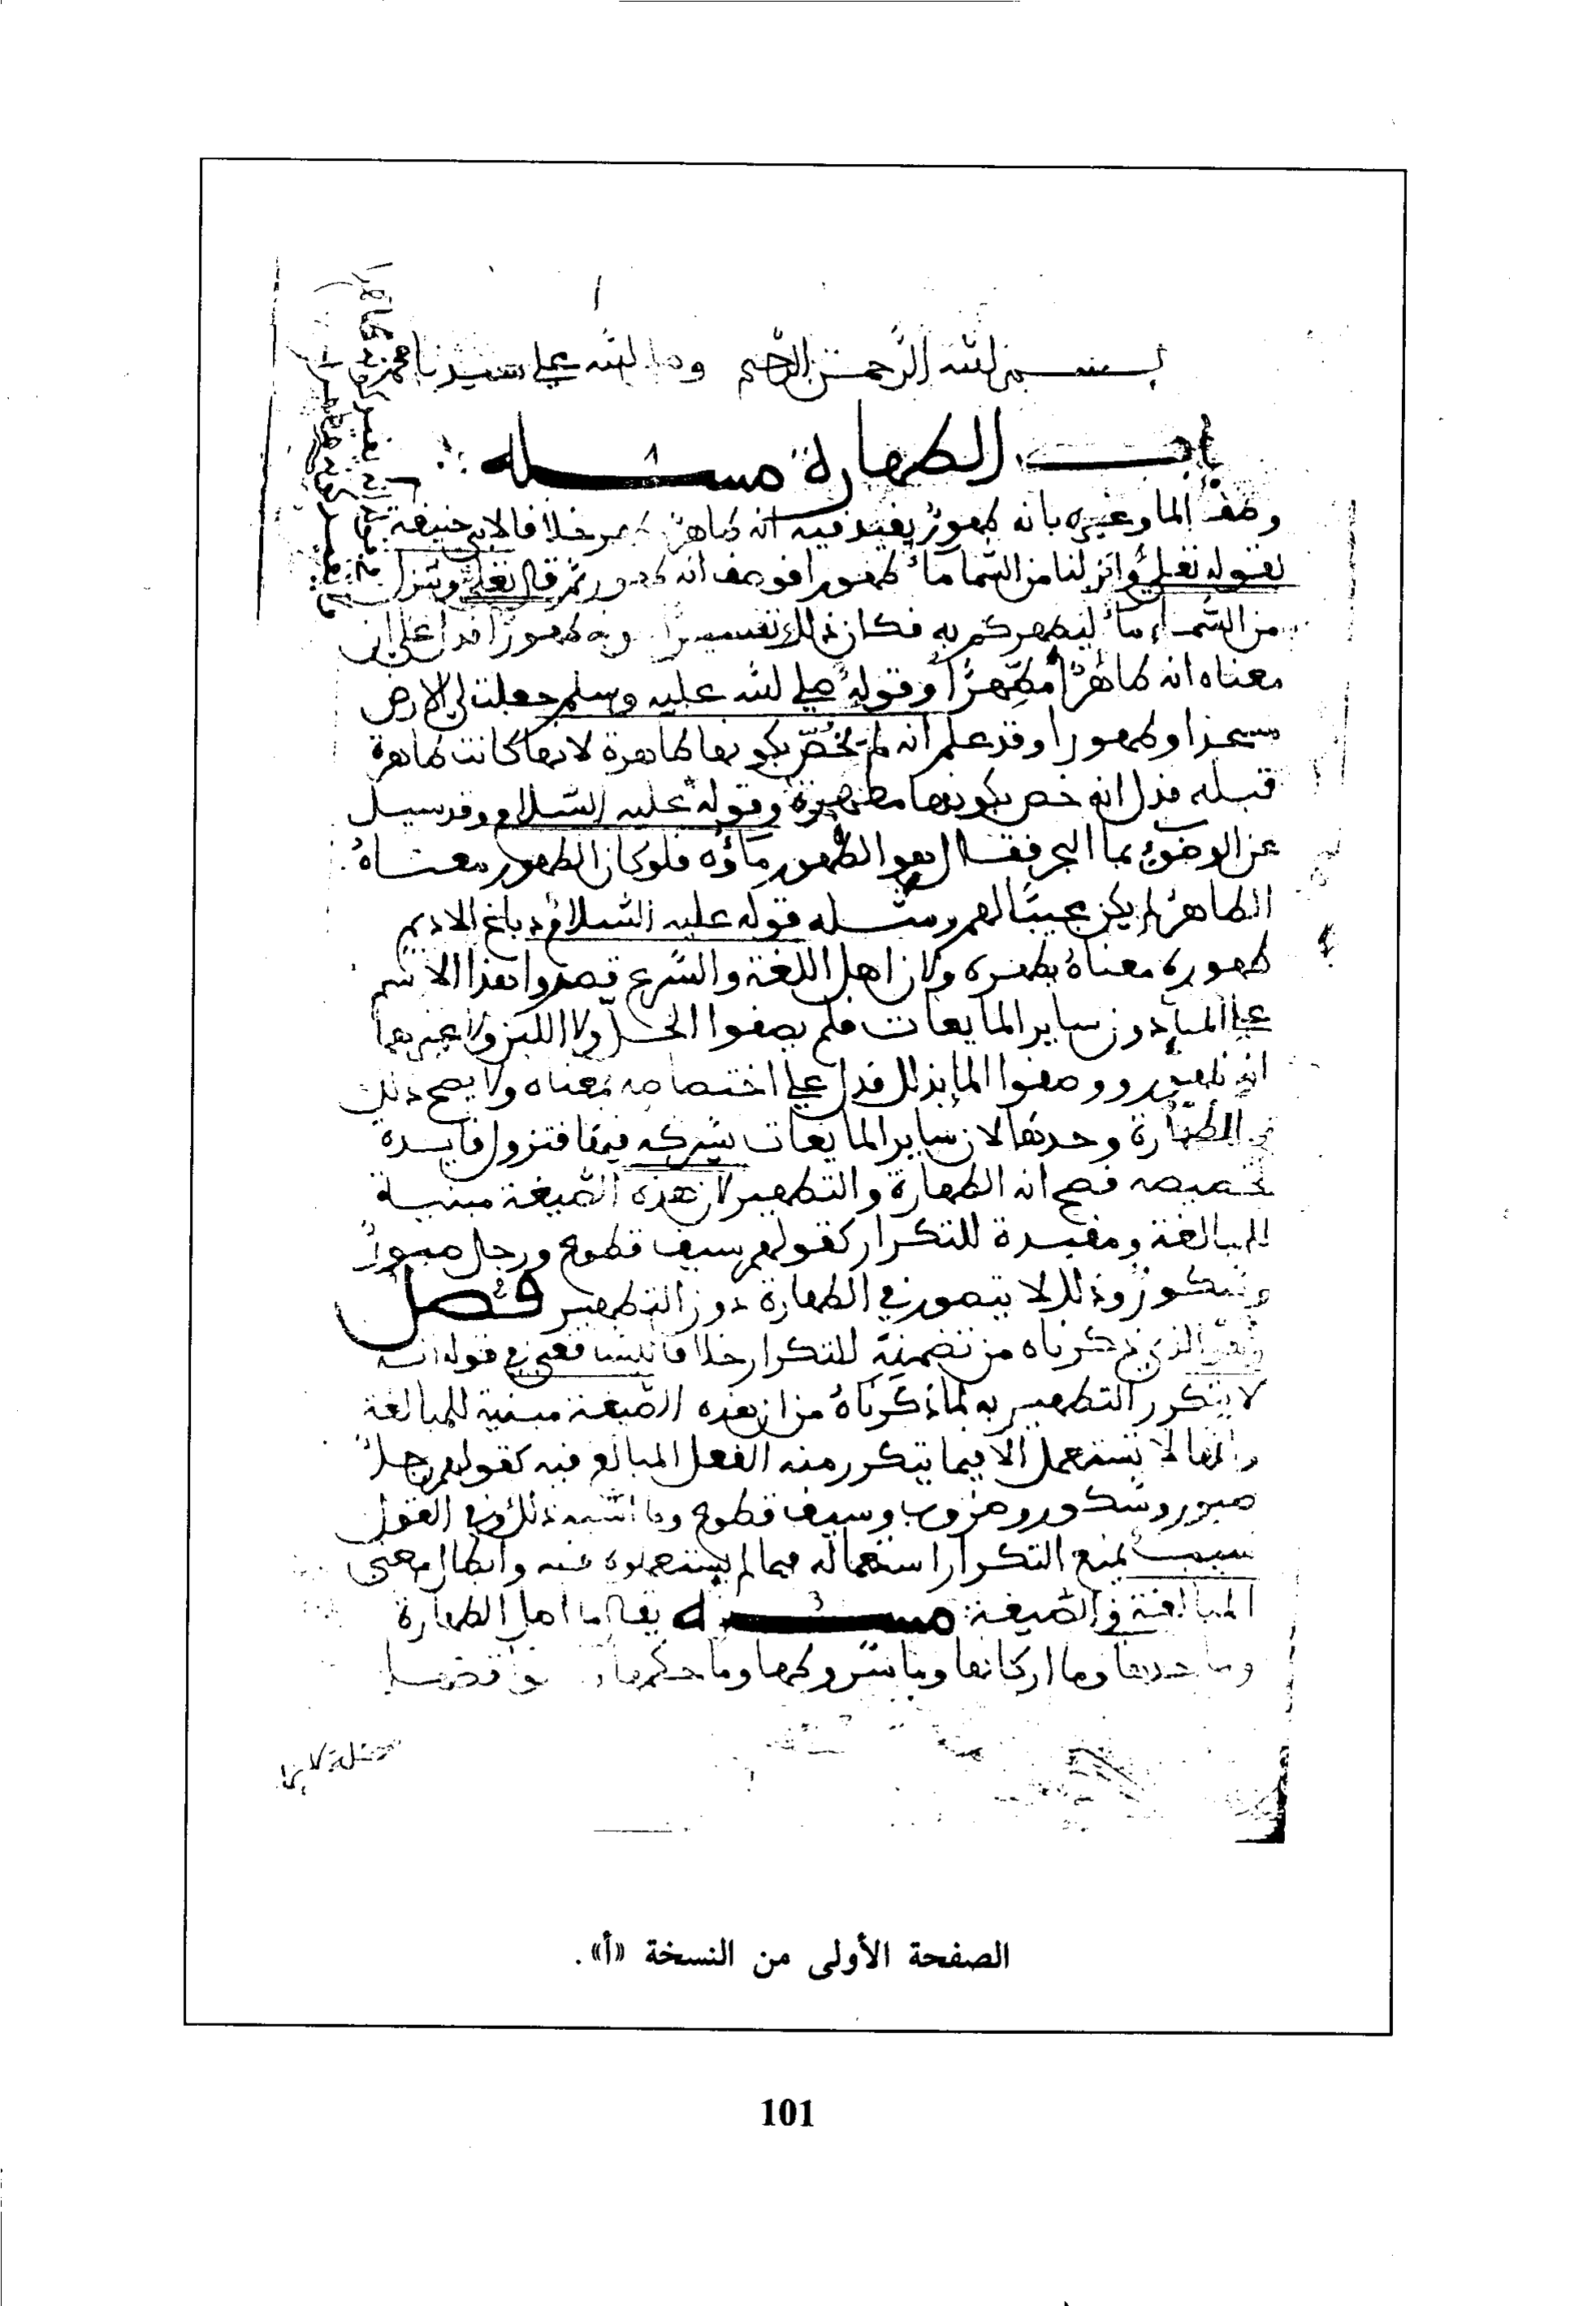 بسم الله الرحمن الرحيم وصلى الله على سيدنا محمد
باب الطهارة مسئلة
وصف الما وغيره بانه طهور يفيد فيه انه طاهر مطهر خلافا لابي حنيفة
لقوله تعلى وانزلنا من السما مآء طهورا فوصفه انه طهور ثم قال تعلى وينزل
من السماء مآء ليطهركم به فكان ذلك تفسيرا لكونه طهورا فدل على ان
معناه انه طاهرًا مطهّرًا وقوله صلى الله عليه وسلم جعلت لي الارض
مسجدا وطهورا وقد علم انه لم يُخصّ بكونها طاهرة لانها كانت طاهرة
قبله فدل انه خص بكونها مطهرة وقوله عليه السلام وقد سيل
عن الوضوء بما البحر فقال هو الطهور ماؤه فلو كان الطهور معناهُ
الطاهرُ لم يكن مجيبًا لهم ومثله قوله عليه السلام دباغ الاديم
طهوره معناهُ يطهره ولان اهل اللغة والشرع قصروا هذا الاسم
على الما دون ساير المايعات فلم يصفوا الخل ولا اللبن ولا غيرهما
انه طهور ووصفوا الما بذلك فدل على اختصاصه بمعناه ولا يصح ذلك
في الطهارة وحدها لان ساير المايعات تشركه فيها فتزول فايدة
تخصيصه فصح انه الطهارة والتطهير لان هذه الصّيغة مبنية
للمبالغة ومفيدة للتكرار كقولهم سيف قطوع ورجل صبورٌ
وشكور وذلك لا يتصور في الطهارة دون التطهير فصل
الذي ذكرناه من تضمنِه للتكرار خلافا للشافعي في قوله انه
لا يتكرر التطهير به لما ذكرناهُ من ان هذه الصّيغة مبنية للمبالغة
وانها لا تستعمل الا فيما يتكرر منه الفعل المبالغ فيه كقولهم رجلٌ
صبور وشكور وضروب وسيف قطوع وما اشبه ذلك وفي القول
بمنع التكرار استعماله فيما لم يستعملوه فيه وابطال معنى
المبالغة في الصّيغة مسئلة يقال ما اصل الطهارة
وما حدها وما اركانها وما شروطها وما حكمها
الصفحة الأولى من النسخة «أ».
101